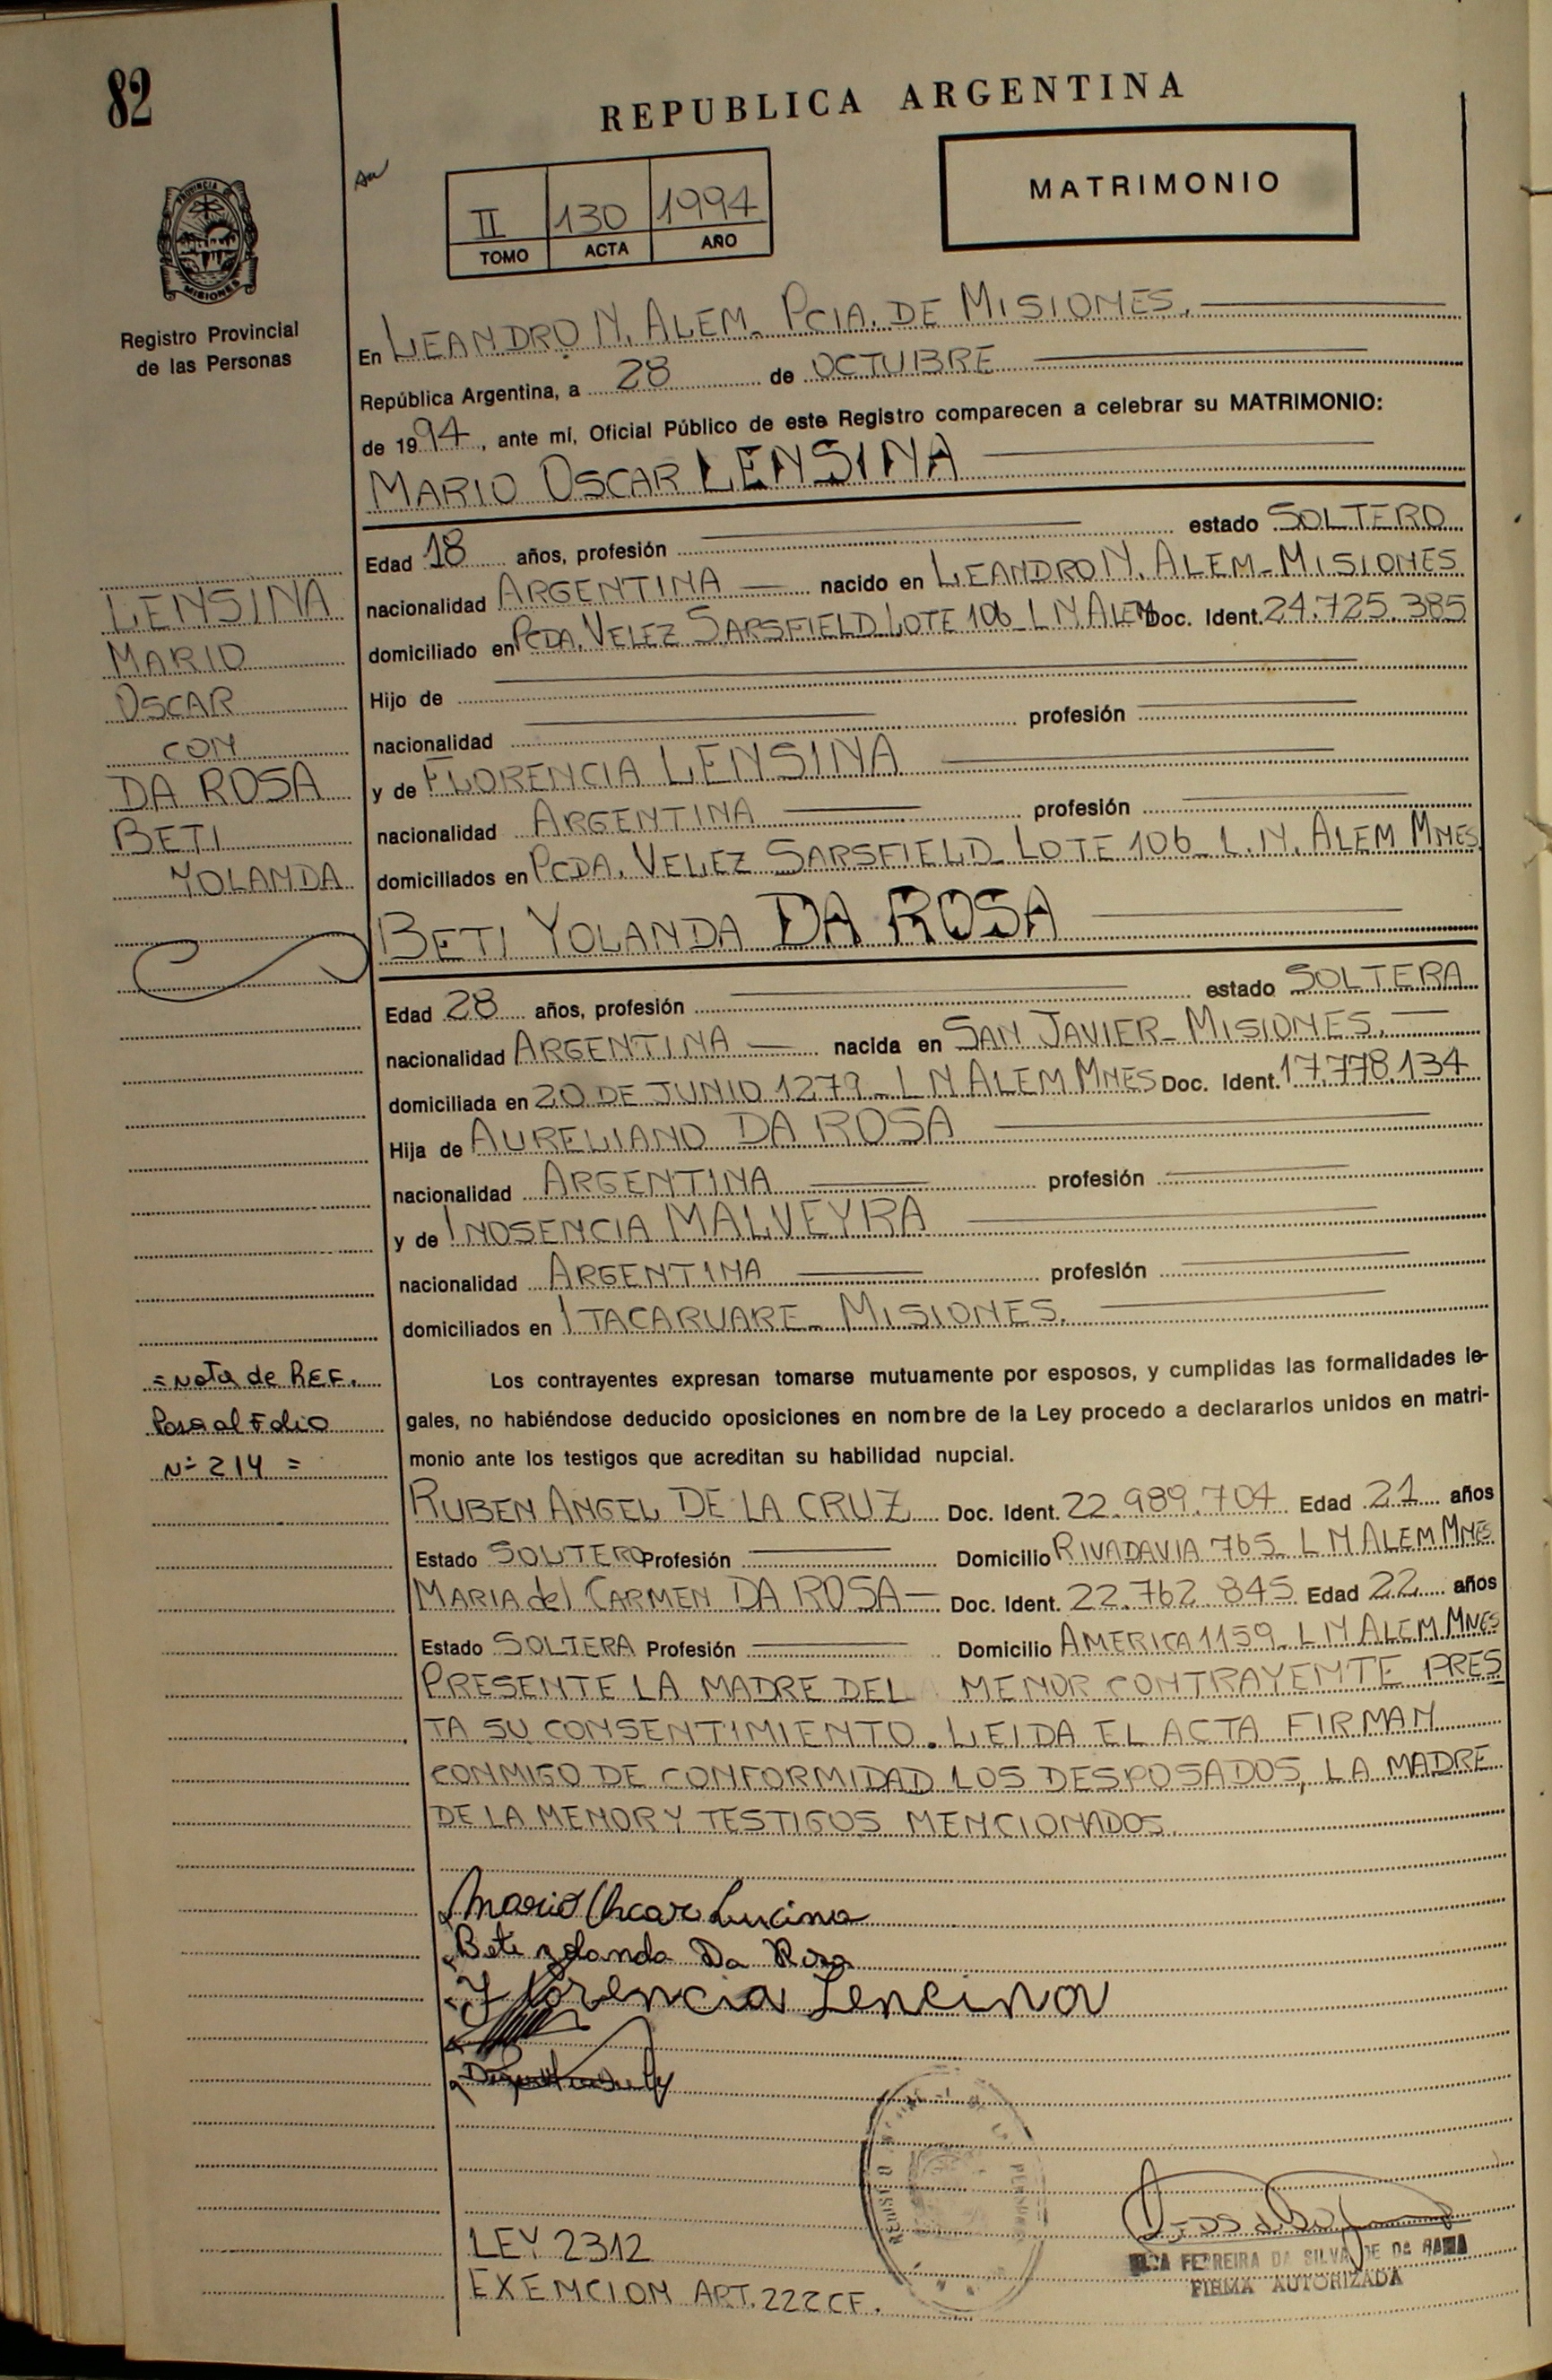 82
REPUBLICA ARGENTINA
MATRIMONIO
II 130 1994
TOMO ACTA AÑO
PROVINCIA DE
MISIONES
Registro Provincial
de las Personas
En LEANDRO N. ALEM - PCIA. DE MISIONES.
República Argentina, a 28 de OCTUBRE
de 1994, ante mí, Oficial Público de este Registro comparecen a celebrar su MATRIMONIO:
MARIO OSCAR LENSINA
Edad 18 años, profesión estado SOLTERO
nacionalidad ARGENTINA nacido en LEANDRO N. ALEM - MISIONES
domiciliado en PCDA. VELEZ SARSFIELD LOTE 106 - L N ALEM Doc. Ident. 24.725.385
Hijo de
nacionalidad profesión
y de FLORENCIA LENSINA
nacionalidad ARGENTINA profesión
domiciliados en PCDA. VELEZ SARSFIELD - LOTE 106 - L. N. ALEM MNES.
LENSINA
MARIO
OSCAR
CON
DA ROSA
BETI
YOLANDA
BETI YOLANDA DA ROSA
Edad 28 años, profesión estado SOLTERA
nacionalidad ARGENTINA nacida en SAN JAVIER - MISIONES.
domiciliada en 20 DE JUNIO 1279 - L N ALEM MNES Doc. Ident. 17.778.134
Hija de AURELIANO DA ROSA
nacionalidad ARGENTINA profesión
y de INOSENCIA MALVEYRA
nacionalidad ARGENTINA profesión
domiciliados en ITACARUARE - MISIONES.
= Nota de REF.
Pasa al Folio
Nº 214 =
Los contrayentes expresan tomarse mutuamente por esposos, y cumplidas las formalidades le-
gales, no habiéndose deducido oposiciones en nombre de la Ley procedo a declararlos unidos en matri-
monio ante los testigos que acreditan su habilidad nupcial.
RUBEN ANGEL DE LA CRUZ Doc. Ident. 22.989.704 Edad 21 años
Estado SOLTERO Profesión Domicilio RIVADAVIA 765 - L N ALEM MNES
MARIA del CARMEN DA ROSA - Doc. Ident. 22.762.845 Edad 22 años
Estado SOLTERA Profesión Domicilio AMERICA 1159 - L N ALEM MNES
PRESENTE LA MADRE DEL MENOR CONTRAYENTE PRES
TA SU CONSENTIMIENTO. LEIDA EL ACTA FIRMAN
CONMIGO DE CONFORMIDAD LOS DESPOSADOS, LA MADRE
DE LA MENOR Y TESTIGOS MENCIONADOS.
Mario Oscar Lucina
Beti yolanda Da Rosa
Florencia Lencina
LEY 2312
EXENCION ART. 222 CF.
FERREIRA DA SILVA DE DA RAMA
FIRMA AUTORIZADA